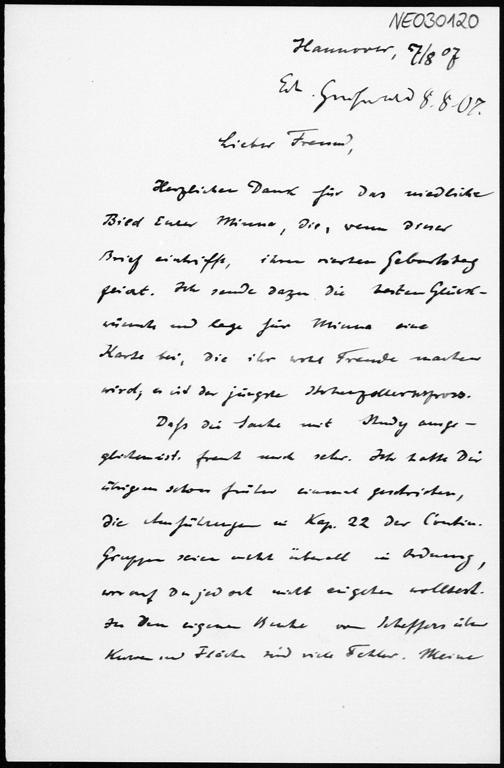 NE030120
Hannover, 7/8 07
Erh. Greifswald 8.8.07.
Lieber Freund,
Herzlichen Dank für das niedliche
Bild Eurer Minna, die, wenn dieser
Brief eintrifft, ihren vierten Geburtstag
feiert. Ich sende dazu die besten Glück-
wünsche und lege für Minna eine
Karte bei, die ihr wohl Freude machen
wird, es ist der jüngste Hohenzollernspross.
Daß die Sache mit Study ausge-
glichen ist, freut mich sehr. Ich hatte Dir
übrigens schon früher einmal geschrieben,
die Ausführungen in Kap. 22 der Contin.
Gruppen seien nicht überall in Ordnung,
worauf Du jedoch nicht eingehen wolltest.
In dem eigenen Buche von Scheffers über
Kurven und Fläche sind viele Fehler. Meine